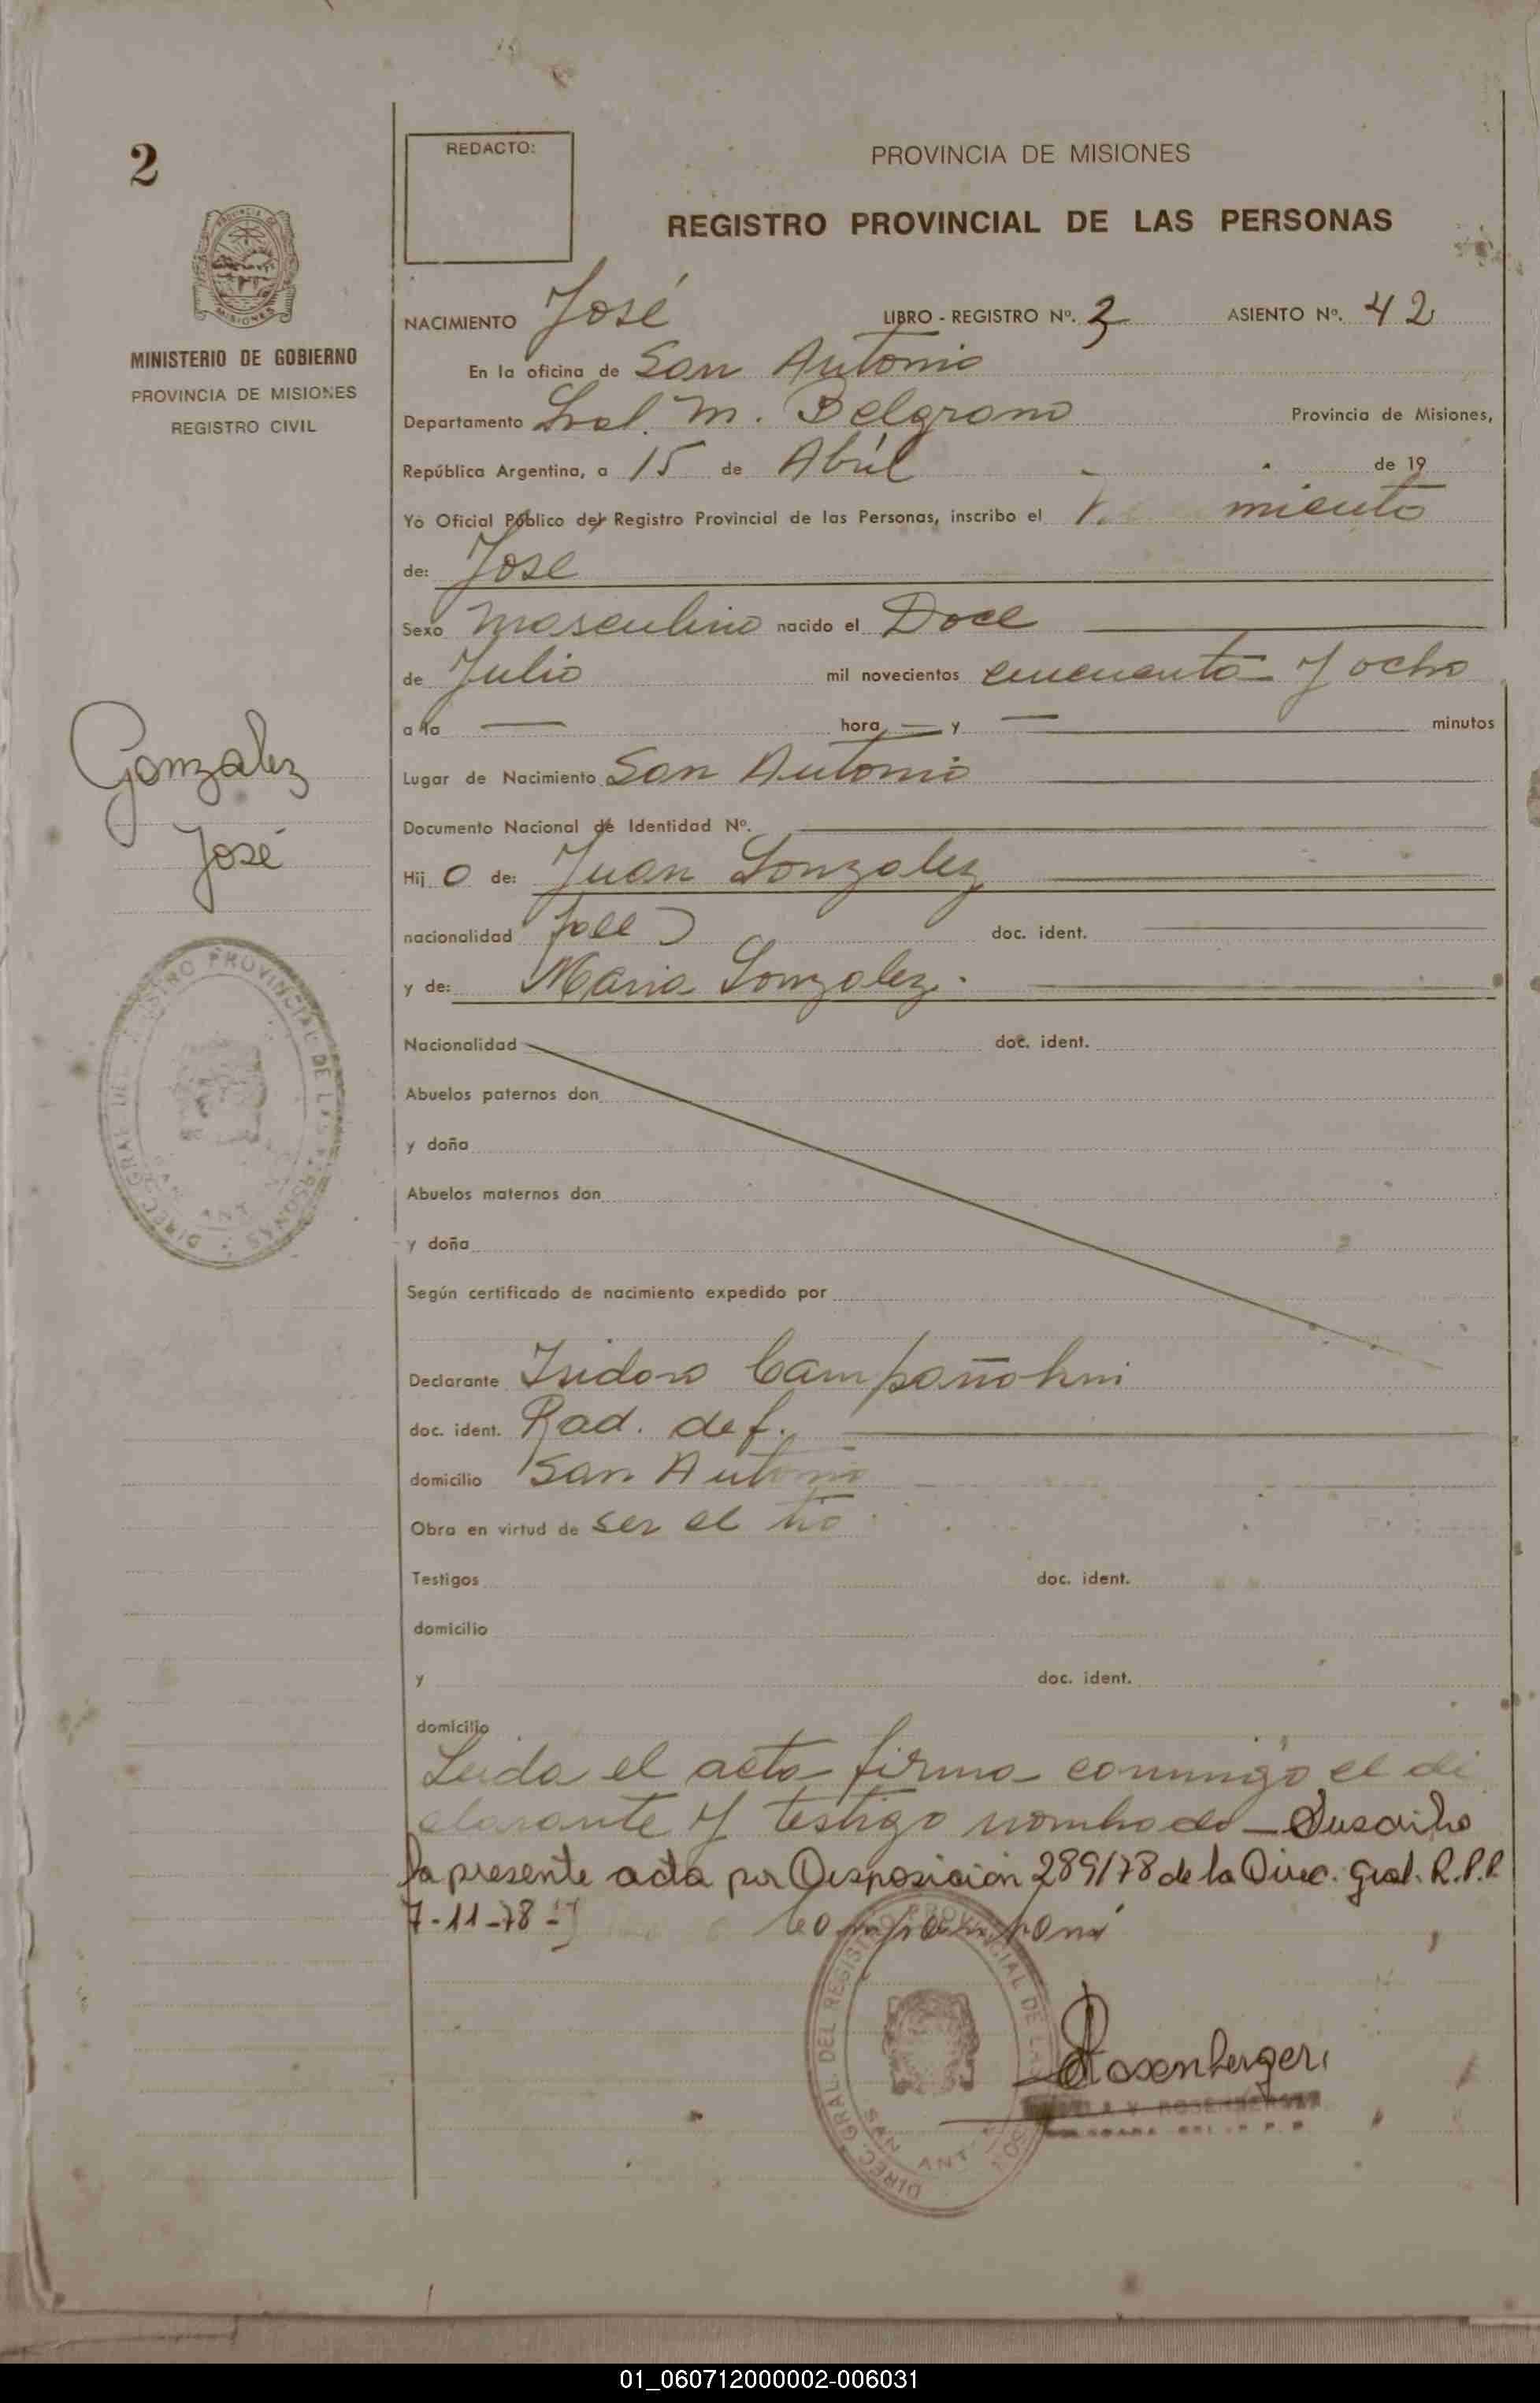 2
REDACTO:
PROVINCIA DE MISIONES
REGISTRO PROVINCIAL DE LAS PERSONAS
MINISTERIO DE GOBIERNO
PROVINCIA DE MISIONES
REGISTRO CIVIL
NACIMIENTO José LIBRO - REGISTRO Nº. 3 ASIENTO Nº. 42
En la oficina de San Antonio
Departamento Gral. M. Belgrano Provincia de Misiones,
República Argentina, a 15 de Abril de 19
Yo Oficial Público del Registro Provincial de las Personas, inscribo el miento
de: Jose
Sexo masculino nacido el Doce
de Julio mil novecientos cincuenta y ocho
a la — hora — y — minutos
Gonzalez
José
Lugar de Nacimiento San Antonio
Documento Nacional de Identidad Nº.
Hij o de: Juan Gonzalez
nacionalidad doc. ident.
y de: Maria Gonzalez.
Nacionalidad doc. ident.
Abuelos paternos don
y doña
Abuelos maternos don
y doña
Según certificado de nacimiento expedido por
Declarante Isidoro
doc. ident.
domicilio San Antonio
Obra en virtud de ser el tio
Testigos doc. ident.
domicilio
y doc. ident.
domicilio
Leida el acta firma conmigo el de
clarante y testigo nombrado - Suscribo
la presente acta por Disposición 289/78 de la Direc. Gral. R.P.P.
7-11-78-
DIREC. GRAL. DEL REGISTRO PROVINCIAL DE LAS PERSONAS
SAN ANT
Rosenberger
01_060712000002-006031